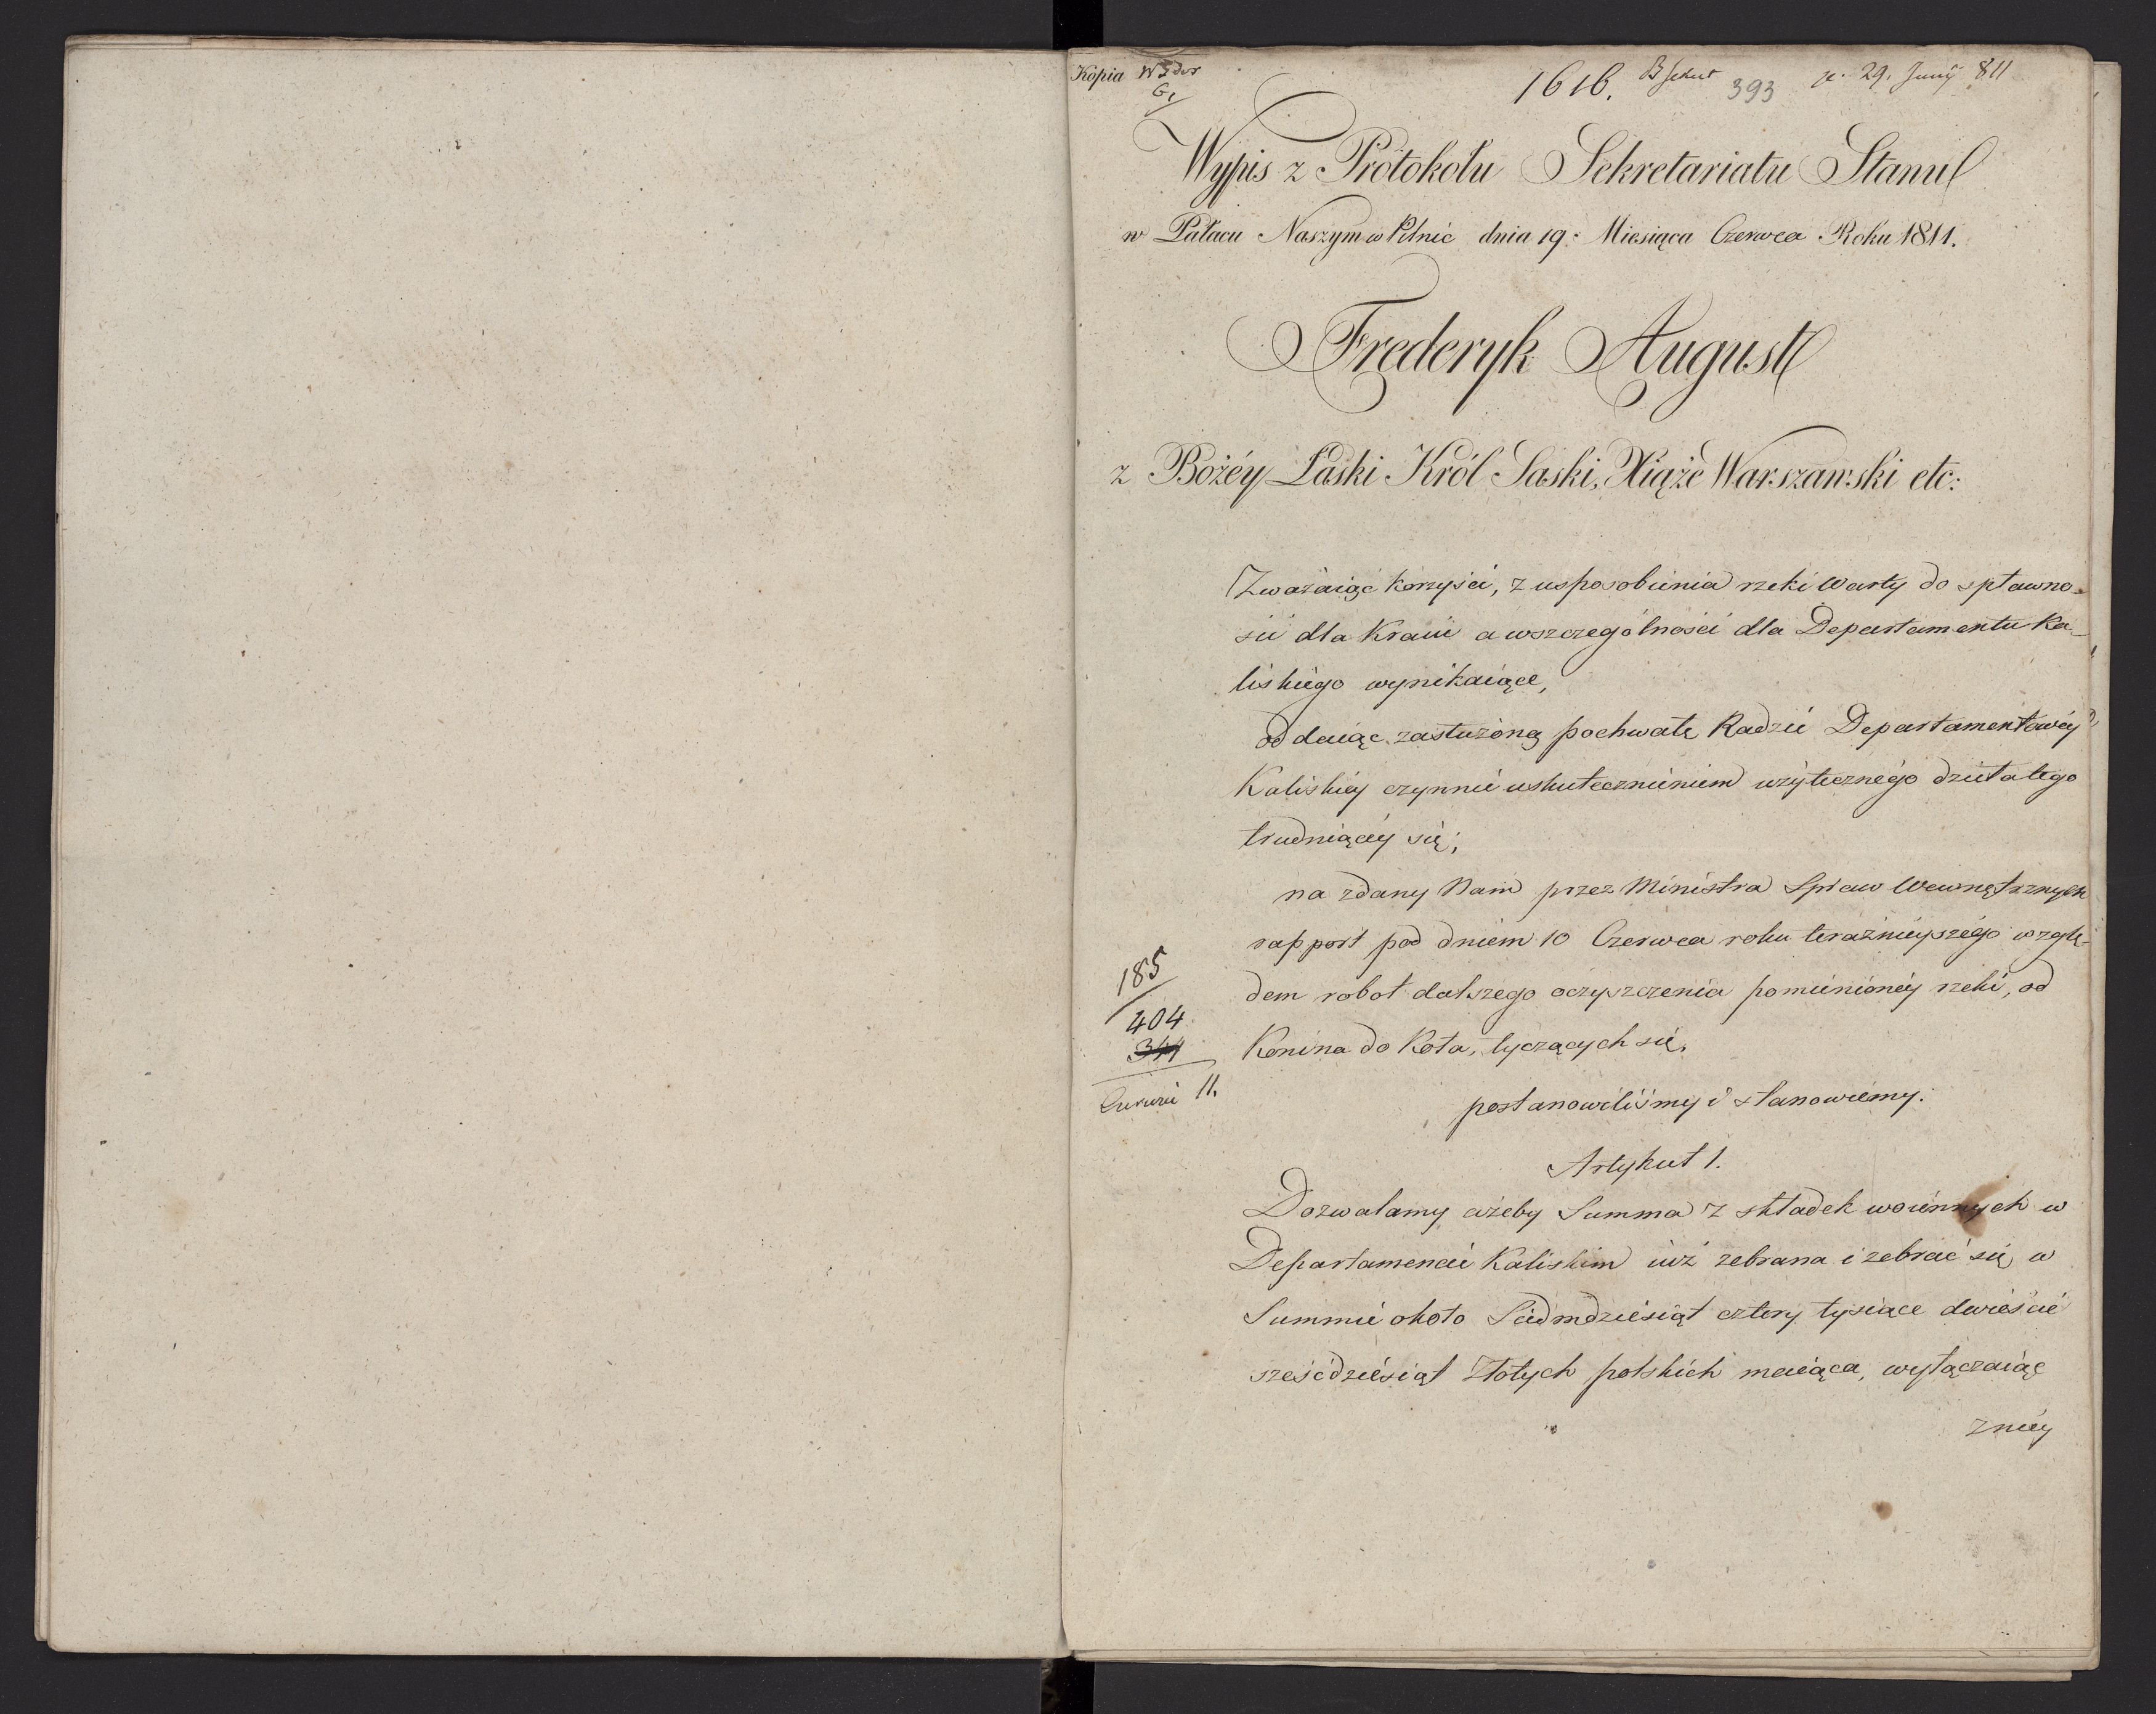 Kopia
1616. 393 29. Junÿ 811
Wypis z Protokołu Sekretariatu Stanu
w Pałacu Naszym w Pilnic dnia 19. Miesiąca Czerwca Roku 1811.
Frederyk August
z Bożéy Łaski Król Saski, Xiąże Warszawski etc:
Zważaiąc korzyści, z usposobienia rzeki Warty do spławno-
ści dla Kraiu a wszczególności dla Departamentu Ka-
liskiego wynikaiące,
oddaiąc zasłużoną pochwałę Radzie Departamentowéy
Kaliskiéy czynnie uskutecznieniem użytecznégo dzieła tego
trudniącéy się;
na zdany Nam przez Ministra Spraw Wewnętrznych
rapport pod dniem 10 Czerwca roku teraźnieyszégo wzglę-
dem robot dalszego oczyszczenia pomienionéy rzeki, od
Konina do Koła, tyczących się,
postanowiliśmy i stanowiemy:
185
404
344
11.
Artykuł 1.
Dozwalamy ażeby Summa z składek woiennych w
Departamencie Kaliskim iuż zebrana i zebrać się w
Summie około Siedmdziesiąt cztery tysiące dwieście
sześćdziesiąt Złotych polskich maiąca, wyłączaiąc
z niéy